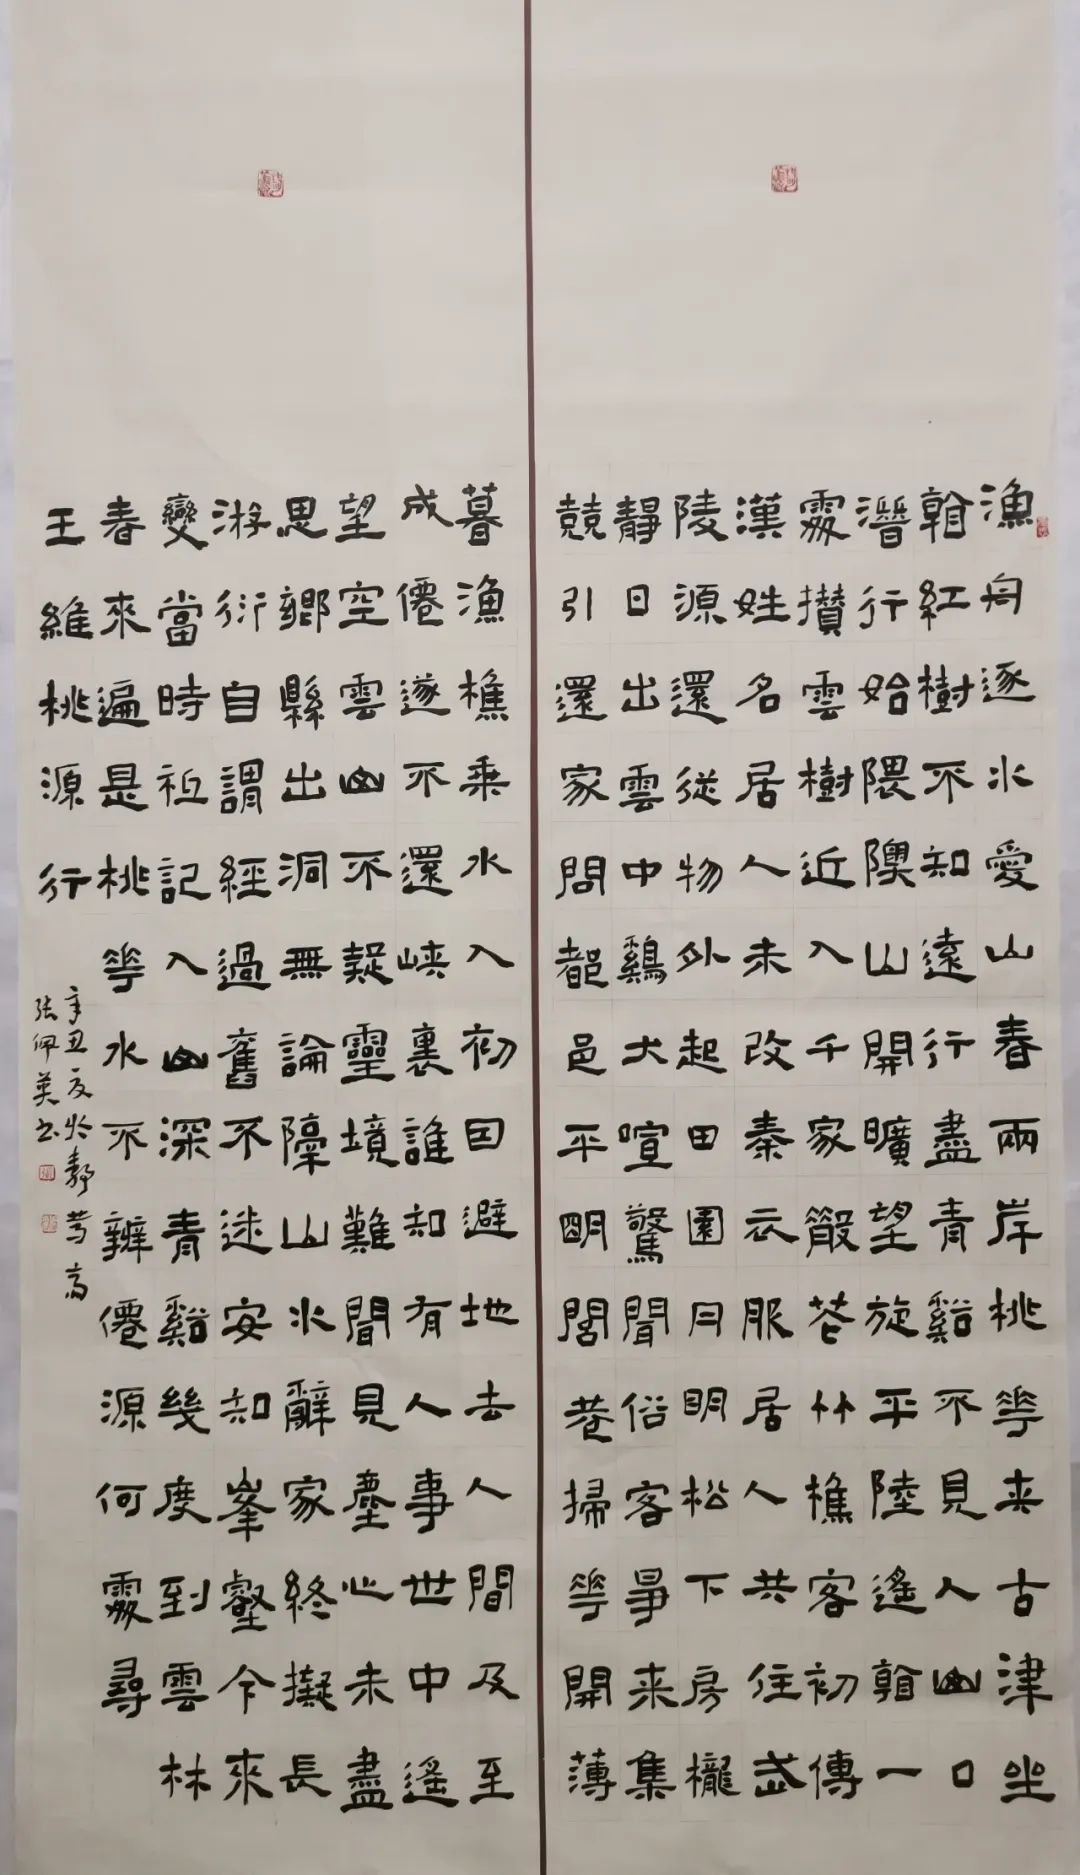 漁舟逐水愛山春兩岸桃花夾古津坐
看紅樹不知遠行盡青谿不見人山口
潛行始隈隩山開曠望旋平陸遙看一
處攢雲樹近入千家散花竹樵客初傳
漢姓名居人未改秦衣服居人共住武
陵源還從物外起田園月明松下房櫳
靜日出雲中雞犬喧驚聞俗客爭来集
競引還家問都邑平明閭巷掃花開薄
暮漁樵乘水入初因避地去人間及至
成僊遂不還峽裏誰知有人事世中遙
望空雲山不疑靈境難聞見塵心未盡
思鄉縣出洞無論隔山水辭家終擬長
游衍自謂經過舊不迷安知峯壑今來
變當時衹記入山深青谿幾度到雲林
春來遍是桃花水不辨僊源何處尋
王維桃源行
辛丑夏於
張佩英书